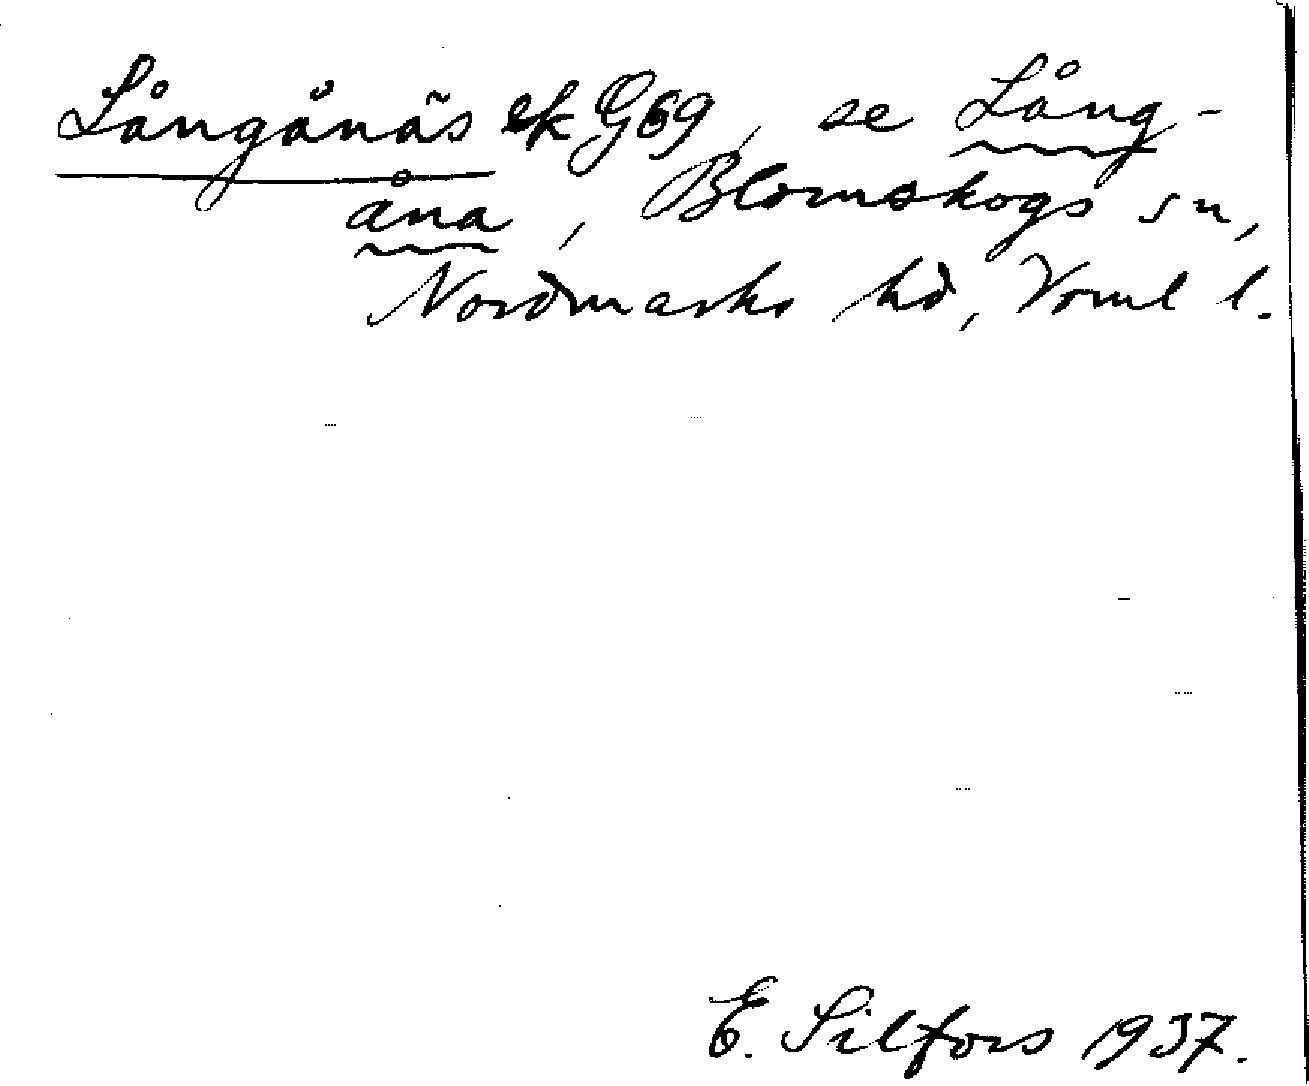 Långånäs ek G69, se Lång-
åna, Blomskogs sn,
Nordmarks hd, Vrml l.
E. Silfors 1937.